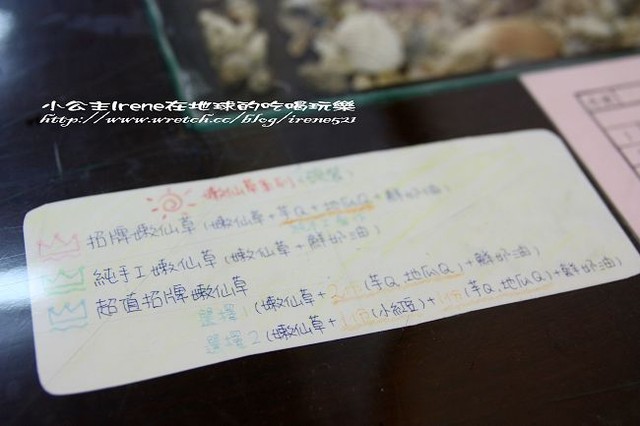 小公主Irene在地球的吃喝玩樂
http://www.wretch.cc/blog/irene521
嫩仙草系列
招牌嫩仙草(嫩仙草+芋Q+地瓜Q+鮮奶油)
純手工嫩仙草(嫩仙草+鮮奶油)
超值招牌嫩仙草
選擇1(嫩仙草+2份(芋Q.地瓜Q)+鮮奶油)
選擇2(嫩仙草+1份(小紅豆)+1份(芋Q.地瓜Q)+鮮奶油)